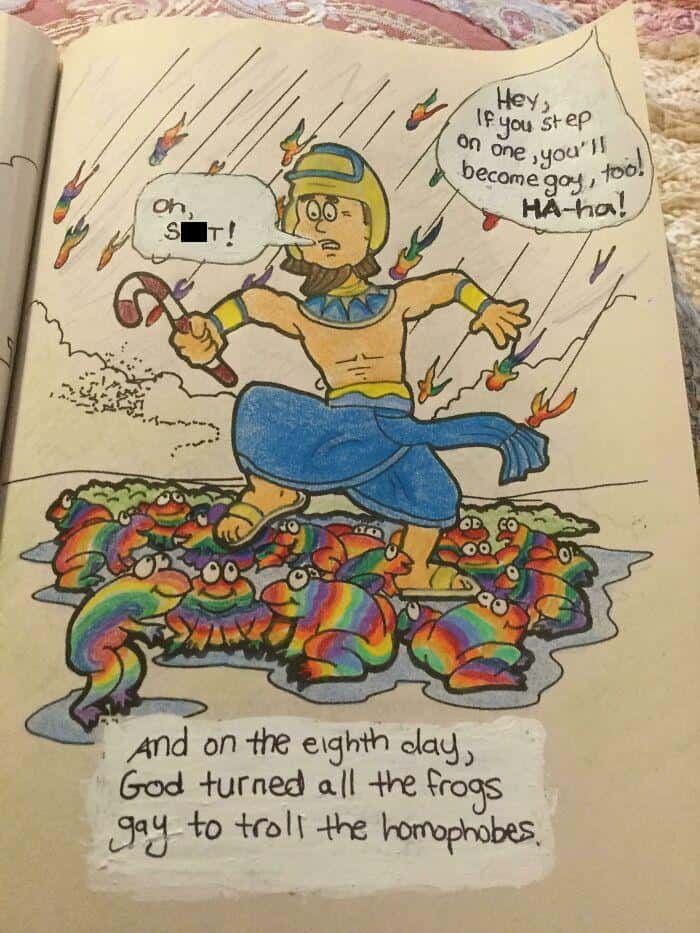 Hey,
If you step
on one, you'll
become gay, too!
HA-ha!
Oh,
S██T!
And on the eighth day,
God turned all the frogs
gay to troll the homophobes.